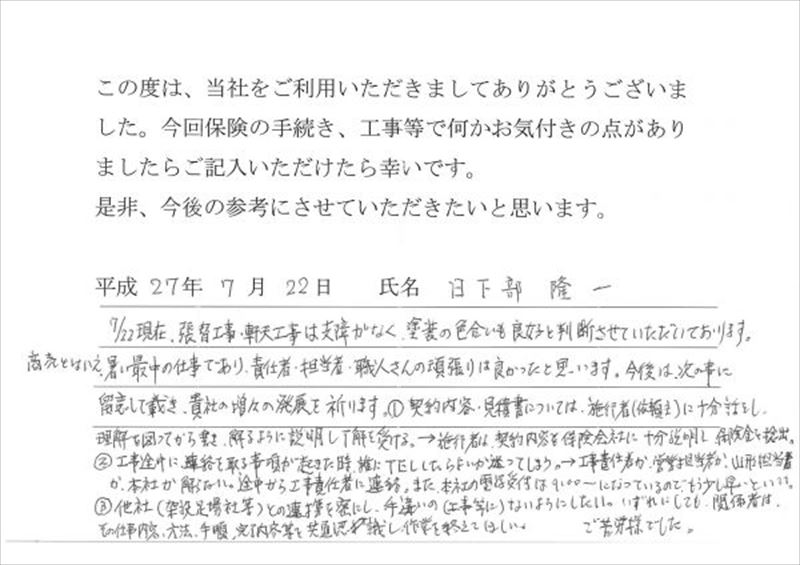 この度は、当社をご利用いただきましてありがとうございま
した。今回保険の手続き、工事等で何かお気付きの点があり
ましたらご記入いただけたら幸いです。
是非、今後の参考にさせていただきたいと思います。
平成 27年 7月 22日 氏名 日下部 隆一
7/22現在、張替工事・軒天工事は支障がなく、塗装の色合いも良好と判断させていただいております。
商売とはいえ、暑い最中の仕事であり、責任者・担当者・職人さんの頑張りは良かったと思います。今後は、次の事に
留意して戴き、貴社の増々の発展を祈ります。① 契約内容・見積書については、施行者(依頼主)に十分話をし、
理解を図ってから書き、解るように説明し了解を受ける。→施行者は、契約内容を保険会社に十分説明し 保険金を捻出。
② 工事途中に、連絡を取る事項が起きた時、誰にTELしたらよいか迷ってしまう。→工事責任者か、営業担当者か、山形担当者
か、本社か 解らない。途中から工事責任者に連絡。また、本社の電話受付は9:00〜になっているのでもう少し早いといい。
③ 他社(架設足場社等)との連携を密にし、手違いの(工事等に)ないようにしたい。いずれにしても、関係者は、
その仕事内容、方法、手順、完了内容等を共通認識し作業を終えてほしい。 ご苦労様でした。